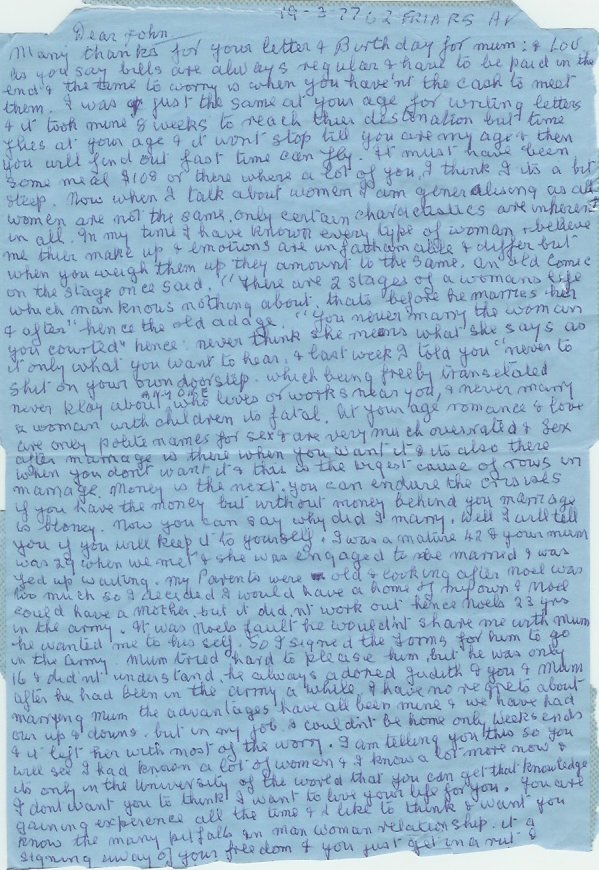 19-3-77 62 FRIARS AV
Dear John
Many thanks for your letter & Birthday for mum: & Lov
as you say bills are always regular & have to be paid in the
end & the time to worry is when you have'nt the cash to meet
them. I was just the same at your age for writing letters
& it took mine 8 weeks to reach thier destination but time
flies at your age & it wont stop till you are my age & then
you will find out fast time can fly. It must have been
some meal £108 or there where a lot of you, I think its a bit
steep. Now when I talk about women I am generalising as all
women are not the same, only certain charactistics are inherent
in all. In my time I have known every type of woman & believe
me thier make up & emotions are unfathamable & differ but
when you weigh them up they amount to the same. An old comic
on the stage once said. "There are 2 stages of a womans life
which man knows nothing about, thats before he marries her
& after" hence the old adage. "You never marry the woman
you courted" hence: never think she means what she says as
it only what you want to hear, & last week I told you "never to
shit on your own doorstep. which being freely translated
never play about ANY ONE who lives or works near you, & never marry
a woman with children its fatal. At your age romance & love
are only polite names for sex & are very much overrated & sex
after marriage is there when you want it & its also there
when you dont want it & that is the bigest cause of rows in
marriage. Money is the next. you can endure the crisises
if you have the money but without money behind you marriage
is stoney. Now you can say why did I marry. Well I will tell
you if you will keep it to yourself. I was a mature 42 & your mum
was 29 when we met & she was engaged to be married & was
fed up waiting. my Parents were old & looking after Noel was
too much so I decided I would have a home of my own & Noel
could have a Mother, but it did nt work out hence Noels 23 yrs
in the army. It was Noels fault he wouldnt share me with mum
he wanted me to his self. So I signed the forms for him to go
in the army. Mum tried hard to please him, but he was only
16 & didnt understand, he always adored Judith & you & Mum
after he had been in the army a while. I have no regrets about
marrying Mum the advantages have all been mine & we have had
our up & downs. but in my job I couldnt be home only weeks ends
& it left her with most of the worry. I am telling you this so you
will see I had known a lot of women & I know a lot more now &
its only in the University of the world that you can get that knowledge
I dont want you to think I want to live your life for you. You are
gaining experence all the time & I like to think & want you
know the many pitfalls in man woman relationship. it a
signing away of your freedom & you just get in a rut &